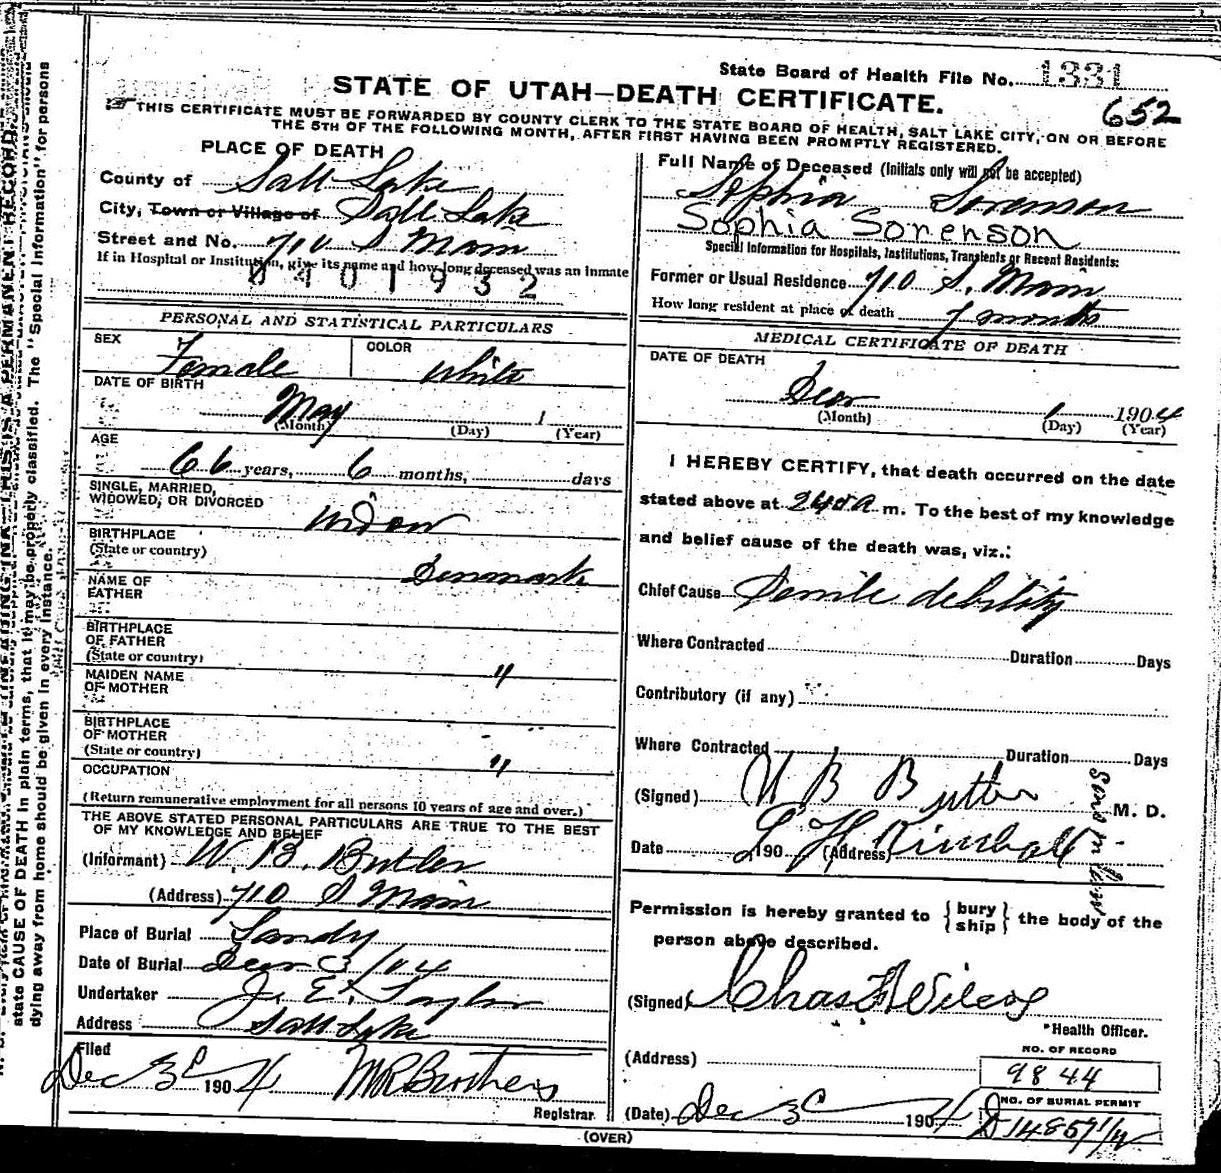 State Board of Health File No. 1331
STATE OF UTAH—DEATH CERTIFICATE.
652
THIS CERTIFICATE MUST BE FORWARDED BY COUNTY CLERK TO THE STATE BOARD OF HEALTH, SALT LAKE CITY, ON OR BEFORE
THE 5TH OF THE FOLLOWING MONTH, AFTER FIRST HAVING BEEN PROMPTLY REGISTERED.
PLACE OF DEATH
County of Salt Lake
City, Town or Village of Salt Lake
Street and No. 710 S Main
If in Hospital or Institution, give its name and how long deceased was an inmate
0401932
PERSONAL AND STATISTICAL PARTICULARS
SEX Female COLOR White
DATE OF BIRTH
May 1
(Month) (Day) (Year)
AGE
66 years, 6 months, days
SINGLE, MARRIED,
WIDOWED, OR DIVORCED
Widow
BIRTHPLACE
(State or country)
Denmark
NAME OF
FATHER
BIRTHPLACE
OF FATHER
(State or country)
"
MAIDEN NAME
OF MOTHER
BIRTHPLACE
OF MOTHER
(State or country)
"
OCCUPATION
(Return remunerative employment for all persons 10 years of age and over.)
THE ABOVE STATED PERSONAL PARTICULARS ARE TRUE TO THE BEST
OF MY KNOWLEDGE AND BELIEF
(Informant) W. B. Butler
(Address) 710 S Main
Place of Burial Sandy
Date of Burial Dec 3/04
Undertaker J. E. Taylor
Address Salt Lake
Filed
Dec 3d 1904 M R Brothers
Registrar.
Full Name of Deceased (Initials only will not be accepted)
Sophia Sorenson
Sophia Sorenson
Special Information for Hospitals, Institutions, Transients or Recent Residents:
Former or Usual Residence 710 S. Main
How long resident at place of death 7 months
MEDICAL CERTIFICATE OF DEATH
DATE OF DEATH
Dec 1 1904
(Month) (Day) (Year)
I HEREBY CERTIFY, that death occurred on the date
stated above at m. To the best of my knowledge
and belief cause of the death was, viz.:
Chief Cause Senile debility
Where Contracted Duration Days
Contributory (if any)
Where Contracted Duration Days
(Signed) W B Butler M. D.
son in law
Date 190 (Address) Kimball
Permission is hereby granted to {bury ship} the body of the
person above described.
(Signed) Chas Wilcox
Health Officer.
(Address)
NO. OF RECORD
9844
NO. OF BURIAL PERMIT
(Date) Dec 3d 1904
(OVER)
state CAUSE OF DEATH in plain terms, that it may be properly classified. The "Special Information" for persons
dying away from home should be given in every instance.